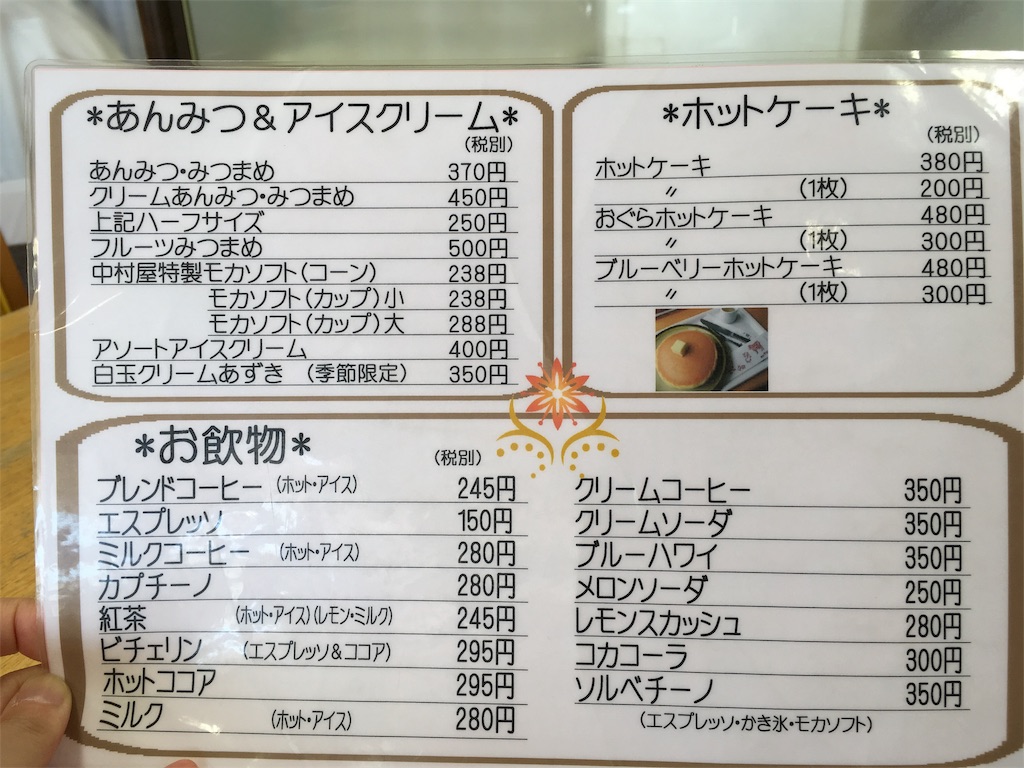 *あんみつ&アイスクリーム*
(税別)
あんみつ・みつまめ 370円
クリームあんみつ・みつまめ 450円
上記ハーフサイズ 250円
フルーツみつまめ 500円
中村屋特製モカソフト(コーン) 238円
モカソフト(カップ)小 238円
モカソフト(カップ)大 288円
アソートアイスクリーム 400円
白玉クリームあずき (季節限定) 350円
*ホットケーキ*
(税別)
ホットケーキ 380円
〃 (1枚) 200円
おぐらホットケーキ 480円
〃 (1枚) 300円
ブルーベリーホットケーキ 480円
〃 (1枚) 300円
*お飲物*
(税別)
ブレンドコーヒー (ホット・アイス) 245円
エスプレッソ 150円
ミルクコーヒー (ホット・アイス) 280円
カプチーノ 280円
紅茶 (ホット・アイス)(レモン・ミルク) 245円
ビチェリン (エスプレッソ&ココア) 295円
ホットココア 295円
ミルク (ホット・アイス) 280円
クリームコーヒー 350円
クリームソーダ 350円
ブルーハワイ 350円
メロンソーダ 250円
レモンスカッシュ 280円
コカコーラ 300円
ソルベチーノ 350円
(エスプレッソ・かき氷・モカソフト)